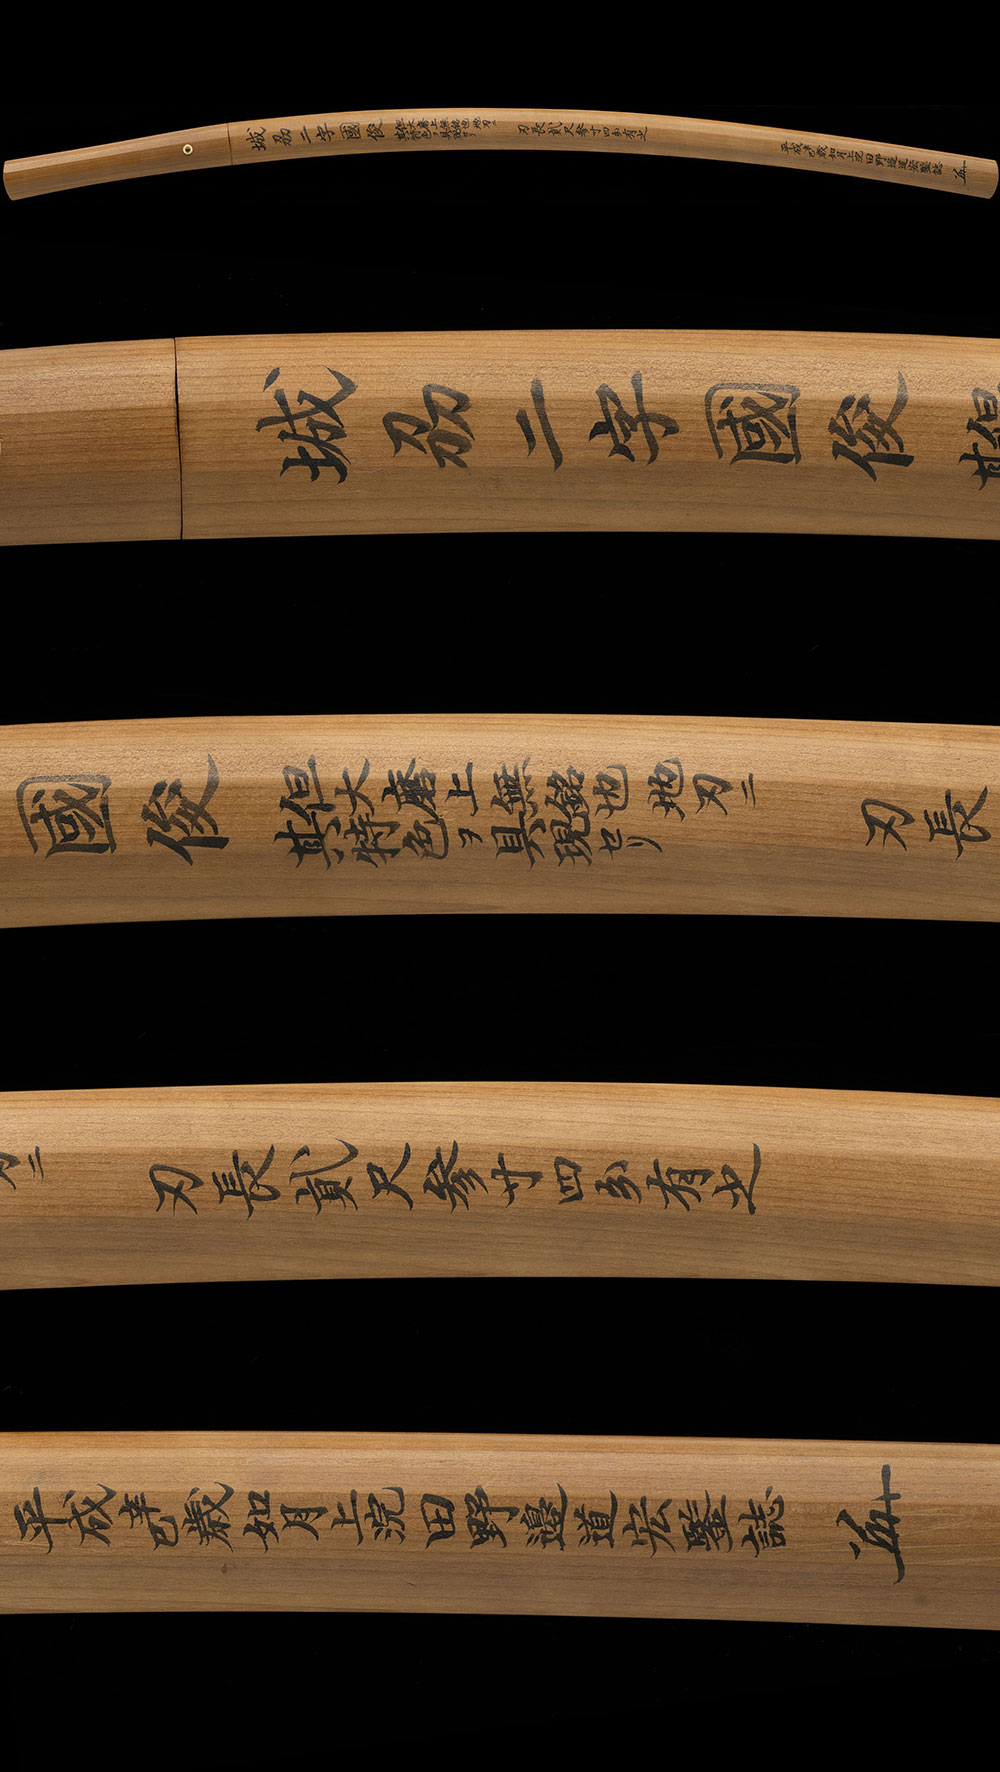 城刕二字國俊
但大磨上無銘也地刃ニ
其特色ヲ具現セリ
刃長貳尺参寸四分有之
平成辛巳歳如月上浣田野邊道宏鑒誌
城刕二字國俊
但
其
國俊
但大磨上無銘也地刃ニ
其特色ヲ具現セリ
刃長
刃ニ
刃長貳尺参寸四分有之
平成辛巳歳如月上浣田野邊道宏鑒誌